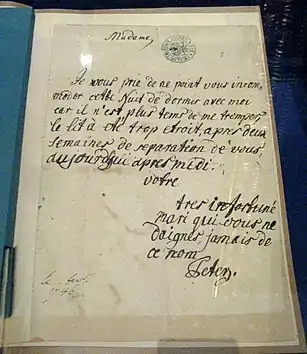 Madame,
Je vous prie de ne point vous incom
moder cette Nuit de dormir avec moi
car il n'est plus tems de me tremper
le lit à été trop etroit, apres deux
semaines de separation de vous,
aujourd'hui apres midi
votre
tres infortuné
mari qui vous ne
daignez jamais de
ce nom
Peter.
le
1746